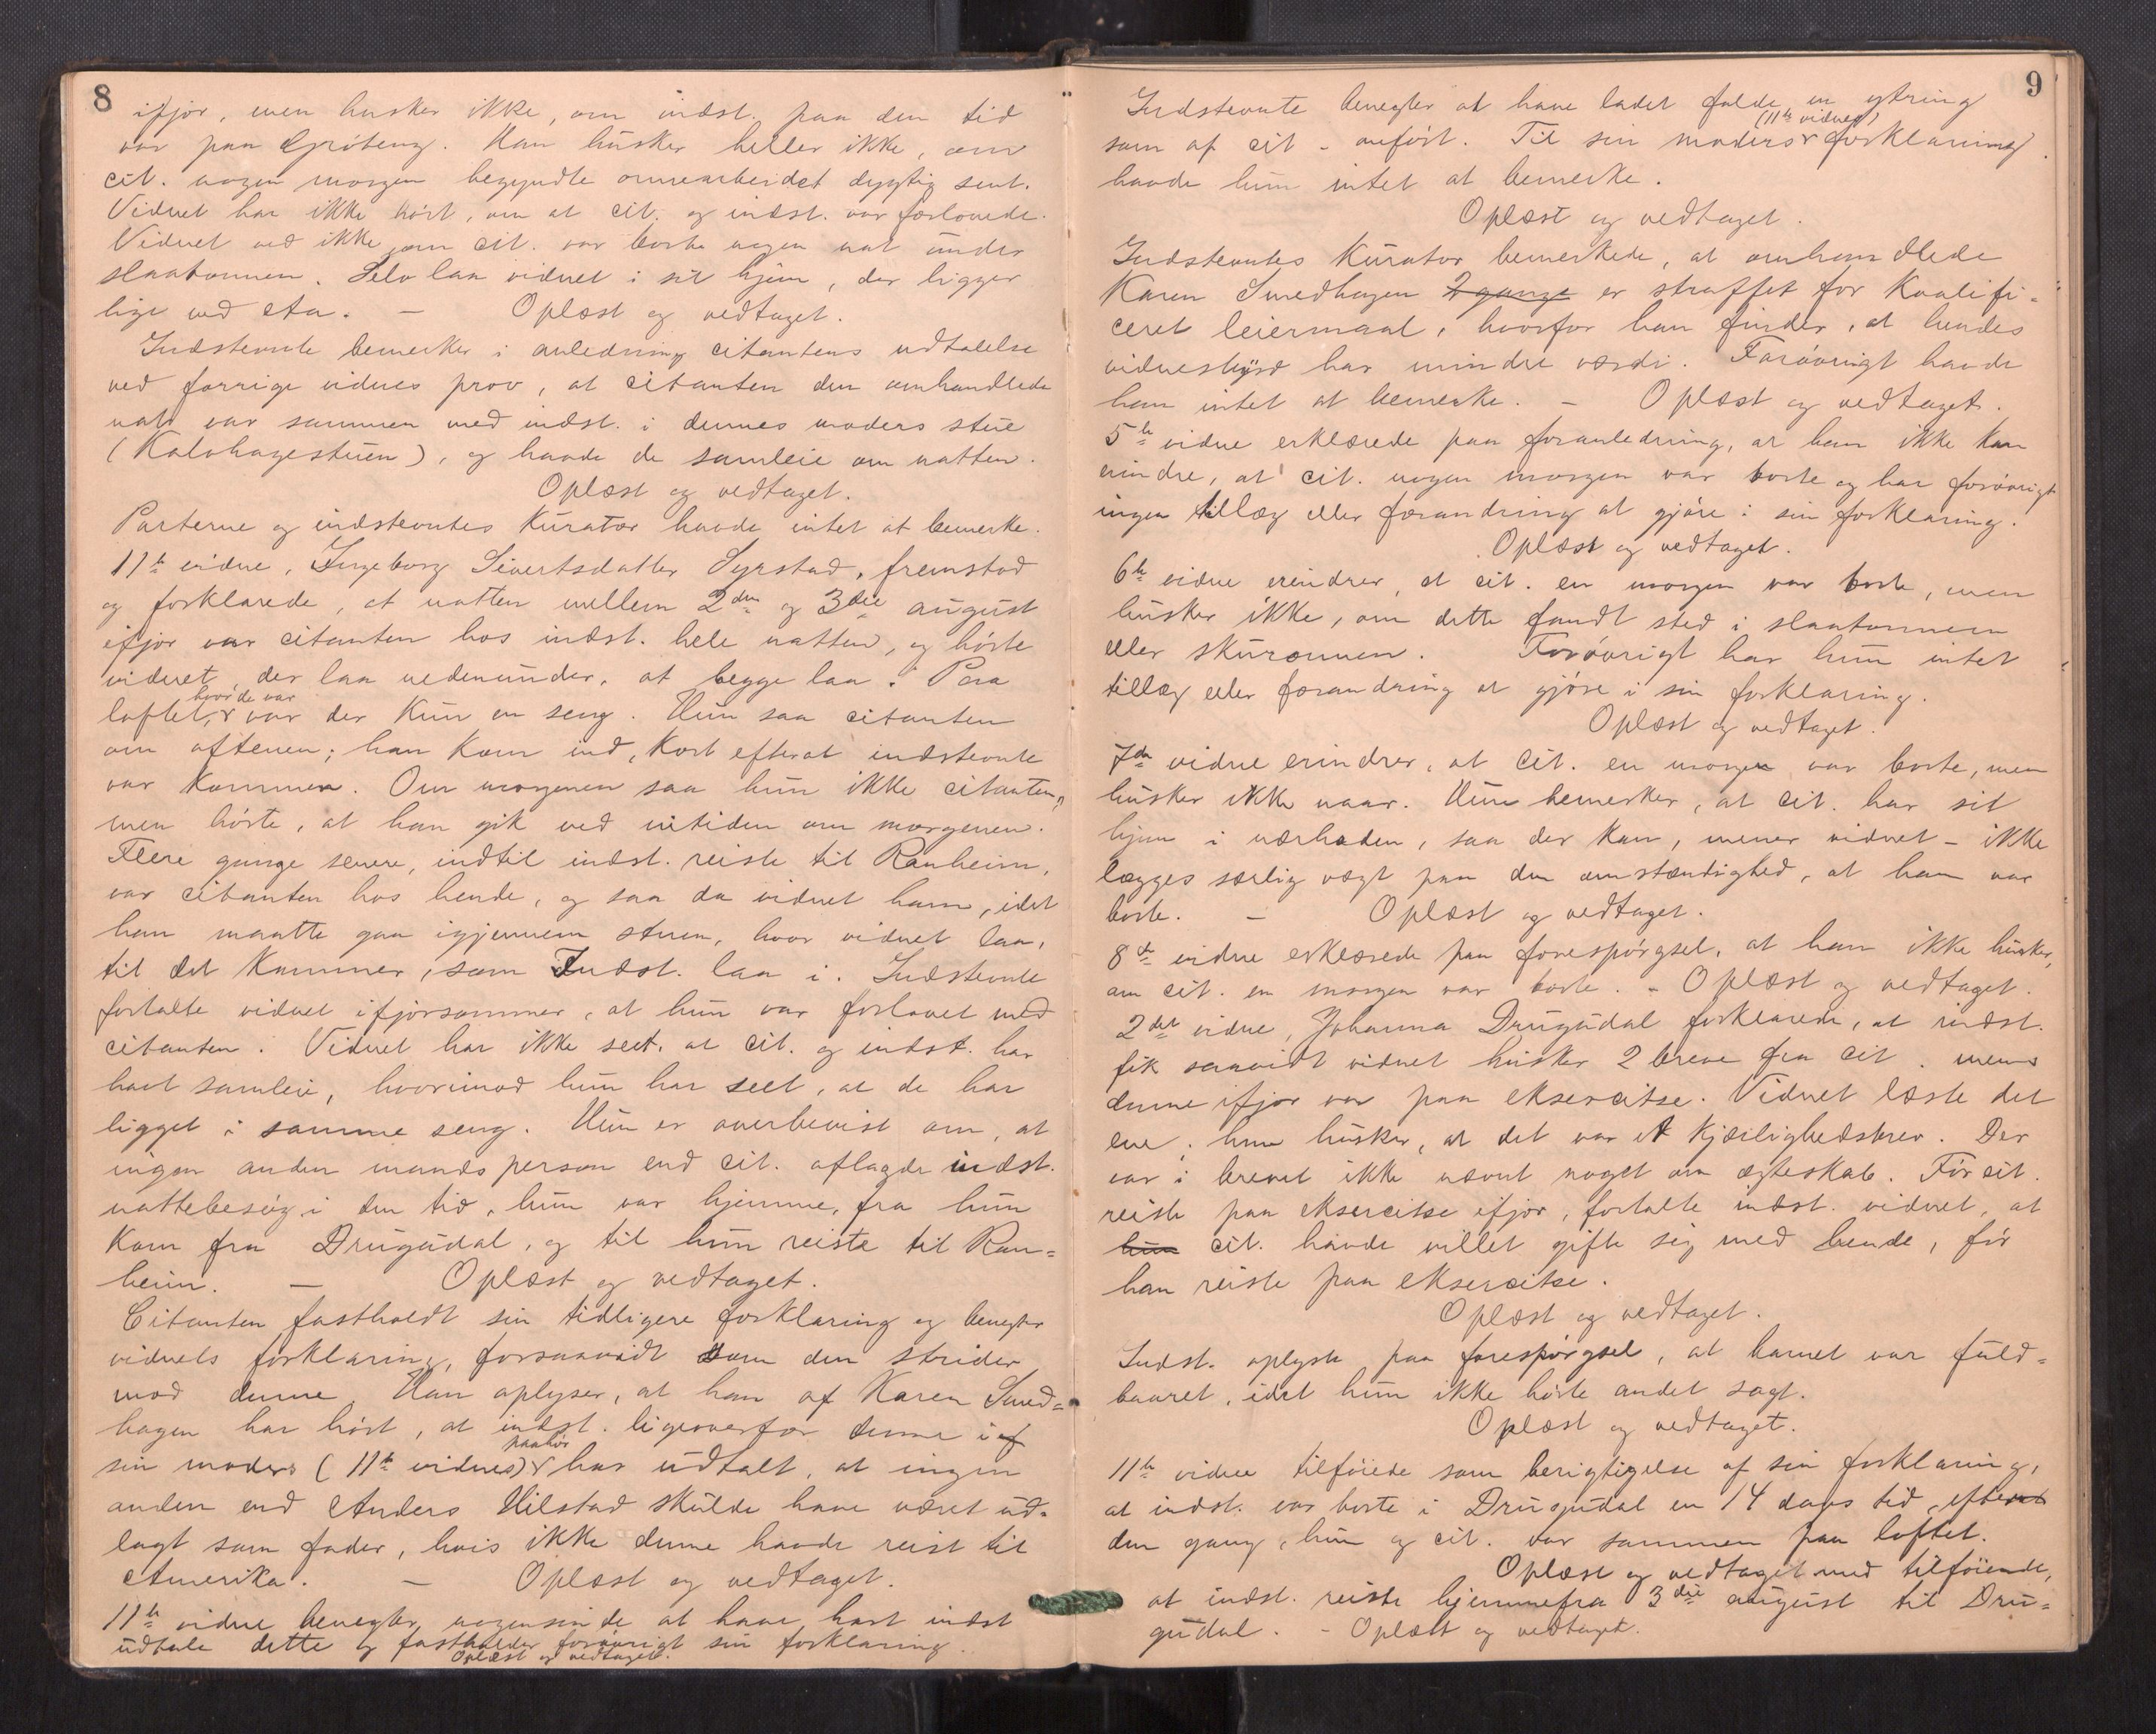 8
ifjor, men husker ikke, om indst. paa den tid
var paa Grötem. Han husker heller ikke, om
cit. nogen morgen begyndte onnearbeidet dygtig sent.
Vidnet har ikke hört, om at cit. og indst. var forlovede.
Vidnet ved ikke, om cit. var borte nogen nat under
slaatonnen. Selv laa vidnet i sit hjem, der ligger
lige ved Aa. — Oplæst og vedtaget.
Indstevnte bemerker i anledning citantens udtalelse
ved forrige vidnes prov, at citanten den omhandlede
nat var sammen med indst. i dennes moders stue
(Kalvhagestuen), og havde de samleie om natten.
Oplæst og vedtaget.
Parterne og indstevntes Kurator havde intet at bemerke.
11te vidne, Ingeborg Sivertsdatter Syrstad, fremstod
og forklarede, at natten mellem 2den og 3die august
ifjor var citanten hos indst. hele natten, og hörte
vidnet, der laa nedenunder, at begge laa. Paa
loftet, hvor de var var der kun en seng. Hun saa citanten
om aftenen; han kom ind, kort efterat indstevnte
var kommen. Om morgenen saa hun ikke citanten,
men hörte, at han gik ved nitiden om morgenen.
Flere gange senere, indtil indst. reiste til Ranheim,
var citanten hos hende, og saa da vidnet ham, idet
han maatte gaa igjennem stuen, hvor vidnet laa,
til det kammer, som Indst. laa i. Indstevnte
fortalte vidnet ifjorsommer, at hun var forlovet med
citanten. Vidnet har ikke seet, at cit. og indst. har
havt samleie, hvorimod hun har seet, at de har
ligget i samme seng. Hun er overbevist om, at
ingen anden mandsperson end cit. aflagde indst.
nattebesög i den tid, hun var hjemme, fra hun
kom fra Drugudal, og til hun reiste til Ran=
heim. — Oplæst og vedtaget.
Citanten fastholdt sin tidligere forklaring og benegter
vidnets forklaring, forsaavidt som den strider
mod denne. Han oplyser, at han af Karen Smed=
hagen har hört, at indst. ligeoverfor denne i
sin moders (11te vidnes) paahör har udtalt, at ingen
anden end Anders Hilstad skulde have været ud=
lagt som fader, hvis ikke denne havde reist til
Amerika. — Oplæst og vedtaget.
11te vidne benegter nogensinde at have hört indst
udtale dette og fastholder forövrigt sin forklaring.
Oplæst og vedtaget.
9
Indstevnte benegter at have ladet falde en ytring
som af cit - anfört. Til sin moders (11te vidnes) forklaring
havde hun intet at bemerke.
Oplæst og vedtaget.
Indstevntes Kurator bemerkede, at omhandlede
Karen Smedhagen 2 gange er straffet for kvalifi=
ceret leiermaal, hvorfor han finder, at hendes
vidnesbyrd har mindre værdi. Forövrigt havde
han intet at bemerke. — Oplæst og vedtaget.
5te vidne erklærede paa foranledning, at han ikke kan
erindre, at cit. nogen morgen var borte og har forövrigt
ingen tillæg eller forandring at gjöre i sin forklaring.
Oplæst og vedtaget.
6te vidne erindrer, at cit. en morgen var borte, men
husker ikke, om dette fandt sted i slaatonnen
eller skuronnen. Forövrigt har hun intet
tillæg eller forandring at gjöre i sin forklaring.
Oplæst og vedtaget.
7de vidne erindrer, at cit. en morgen var borte, men
husker ikke naar. Hun bemerker, at cit. har sit
hjem i nærheden, saa der kan, mener vidnet - ikke
lægges særlig vægt paa den omstændighed, at han var
borte. — Oplæst og vedtaget.
8de vidne erklærede paa forespörgsel, at han ikke husker,
om cit. en morgen var borte. - Oplæst og vedtaget.
2det vidne, Johanna Drugudal forklarede, at indst.
fik saavidt vidnet husker 2 breve fra cit. mens
denne ifjor var paa eksercitse. Vidnet læste det
ene; hun husker, at det var et kjærlighedsbrev. Der
var i brevet ikke nævnt noget om ægteskab.För cit.
reiste paa eksercitse ifjor, fortalte indst. vidnet, at
hun cit. havde villet gifte sig med hende, för
han reiste paa eksercitse.
Oplæst og vedtaget.
Indst. oplyste paa forespörgsel, at barnet var fuld=
baaret, idet hun ikke hörte andet sagt.
Oplæst og vedtaget.
11te vidne tilföiede som berigtigelse af sin forklaring,
at indst. var borte i Drugudal en 14 dags tid, efterat
den gang, hun og cit. var sammen paa loftet.
Oplæst og vedtaget med tilföiende,
at indst. reiste hjemmefra 3die august til Dru=
gudal. - Oplæst og vedtaget.